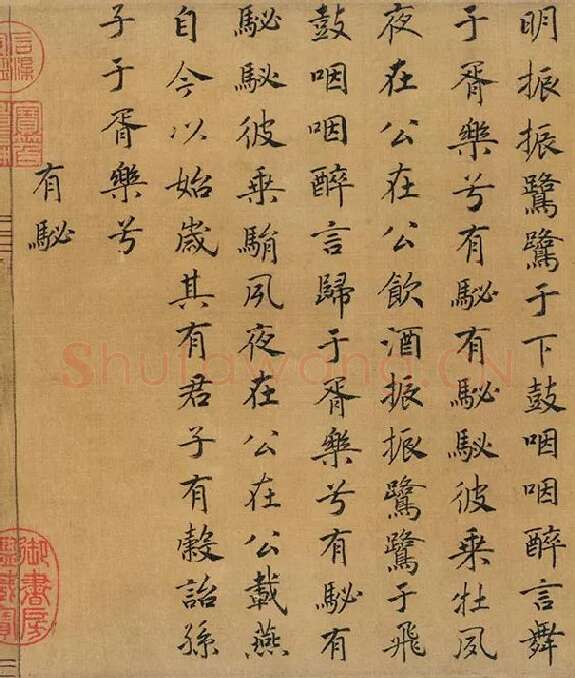 明振振鷺鷺于下鼓咽咽醉言舞
于胥樂兮有駜有駜駜彼乗牡夙
夜在公在公飲酒振振鷺鷺于飛
鼓咽咽醉言歸于胥樂兮有駜有
駜駜彼乗駽夙夜在公在公載燕
自今以始歲其有君子有穀詒孫
子于胥樂兮
有駜
御書房
Shufawang.CN